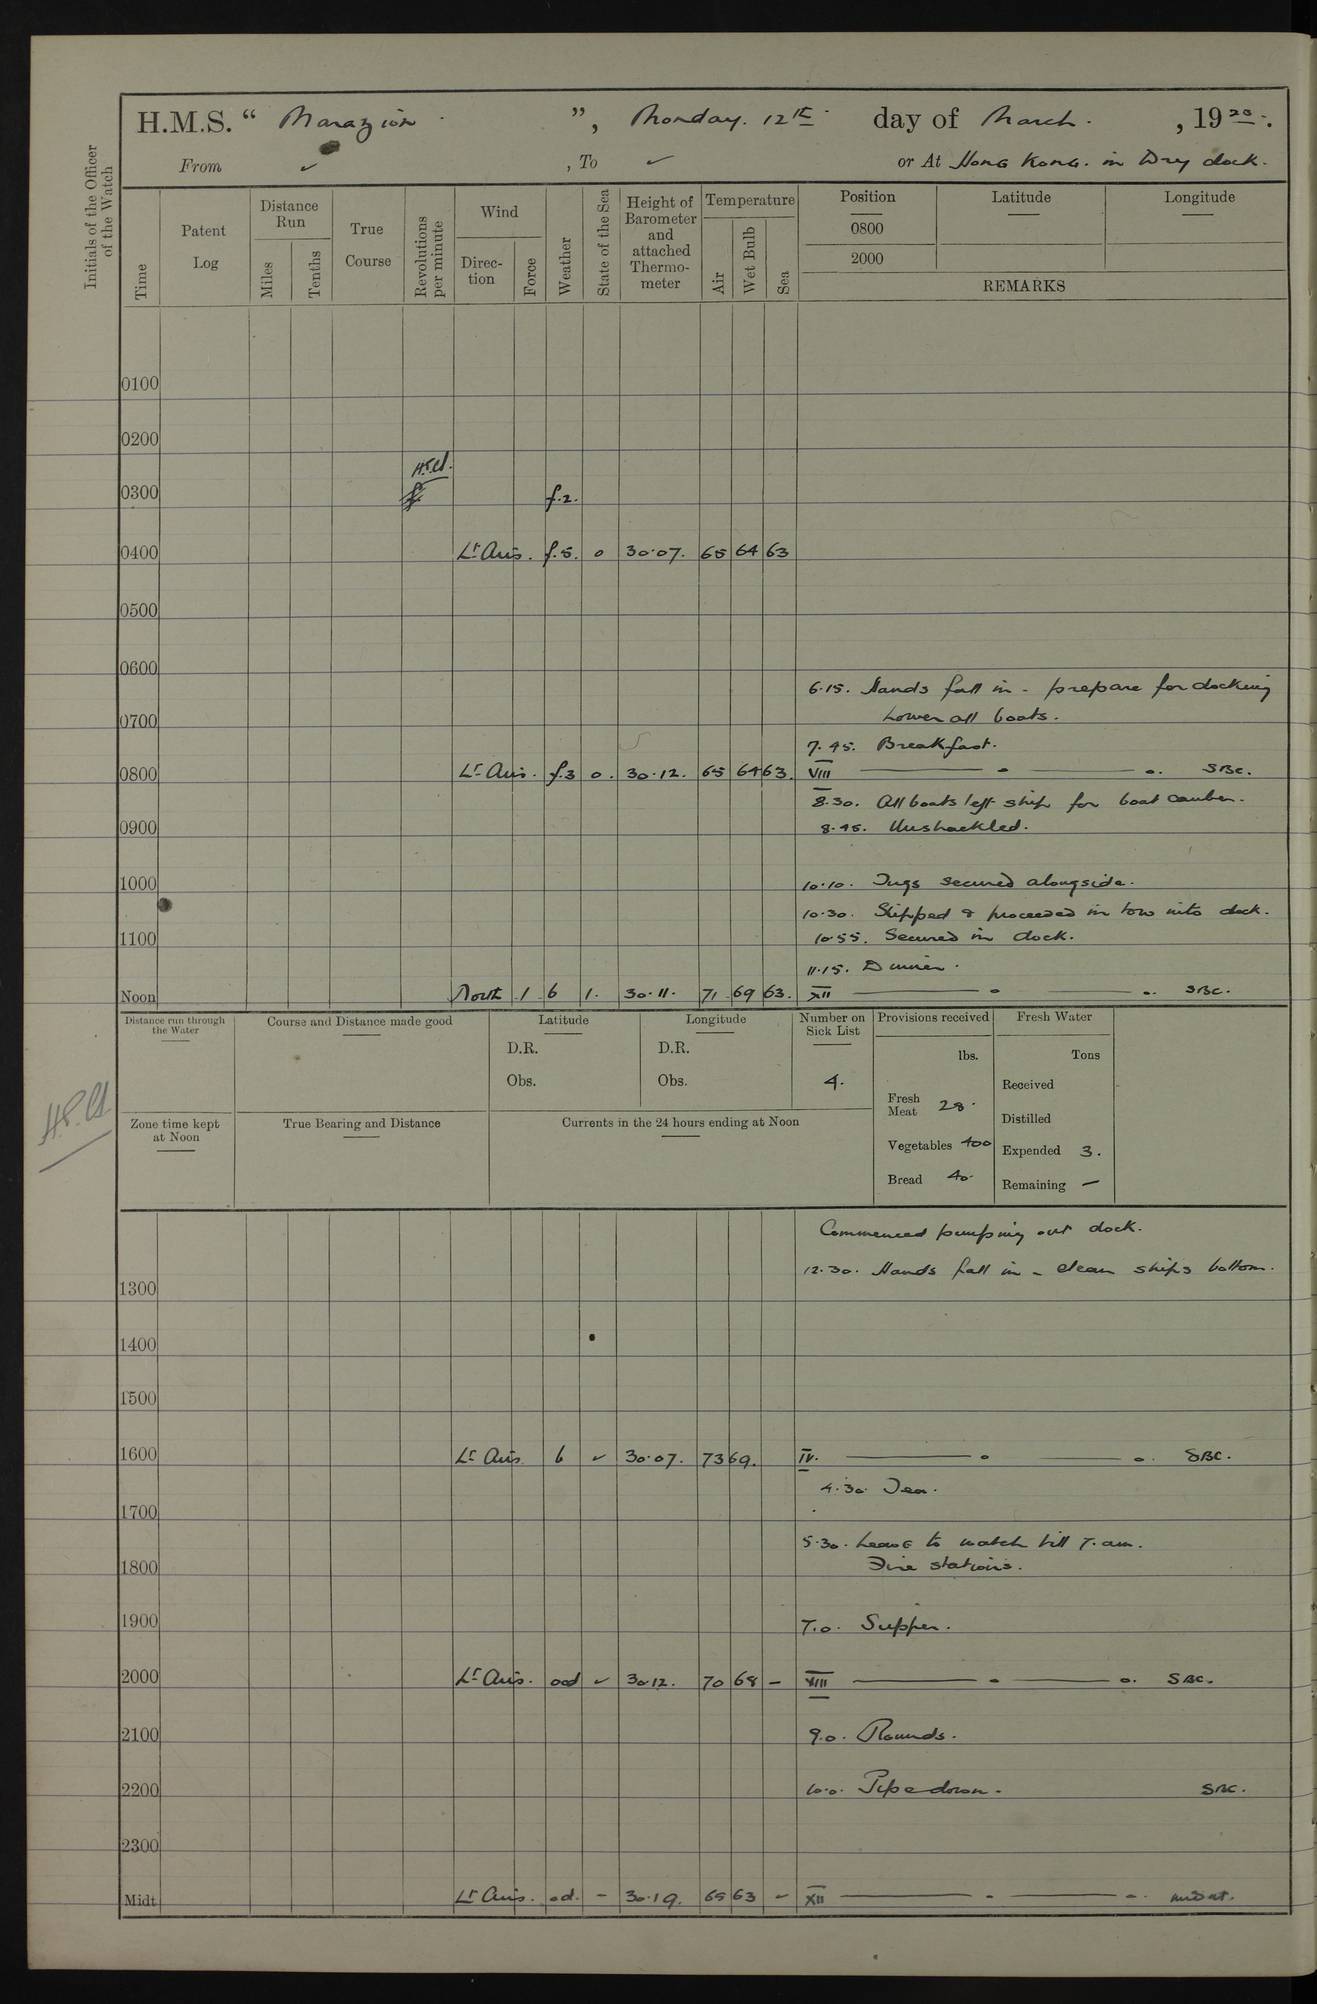 H.M.S. " Marazion ", Monday. 12th day of March. , 1928.
From ✓ , To ✓ or At Hong Kong. in Dry dock.
Initials of the Officer of the Watch
Time
Patent Log
Distance Run
Miles
Tenths
True Course
Revolutions per minute
Wind
Direction
Force
Weather
State of the Sea
Height of Barometer and attached Thermometer
Temperature
Air
Wet Bulb
Sea
Position Latitude Longitude
0800
2000
REMARKS
0100
0200
0300 f.2.
0400 Lt Airs. f.5. 0 30.07. 65 64 63
0500
0600
6.15. Hands fall in - prepare for docking
Lower all boats.
0700
7.45. Breakfast.
0800 Lt Airs. f.3 0. 30.12. 65 64 63. VIII SBC.
8.30. All boats left ship for boat camber.
0900 8.45. Unshackled.
1000 10.10. Tugs secured alongside.
10.30. Slipped & proceeded in tow into dock.
1100 10.55. Secured in dock.
11.15. Dinner.
Noon North 1 b 1. 30.11. 71 69 63. XII SBC.
Distance run through the Water
Course and Distance made good
Latitude
D.R.
Obs.
Longitude
D.R.
Obs.
Number on Sick List
4.
Provisions received
lbs.
Fresh Meat 28.
Vegetables 400
Bread 40.
Fresh Water
Tons
Received
Distilled
Expended 3.
Remaining —
Zone time kept at Noon
True Bearing and Distance
Currents in the 24 hours ending at Noon
Commenced pumping out dock.
12.30. Hands fall in - clean ships bottom.
1300
1400
1500
1600 Lt Airs b ✓ 30.07. 73 69. IV. SBC.
4.30 Tea.
1700
5.30. Leave to watch till 7. am.
Fire stations.
1800
1900 7.0. Supper.
2000 Lt Airs. ood ✓ 30.12. 70 68 - VIII SBC.
2100 9.0. Rounds.
2200 10.0. Pipe down. SBC.
2300
Midt Lt Airs. od. - 30.19. 65 63 ✓ XII